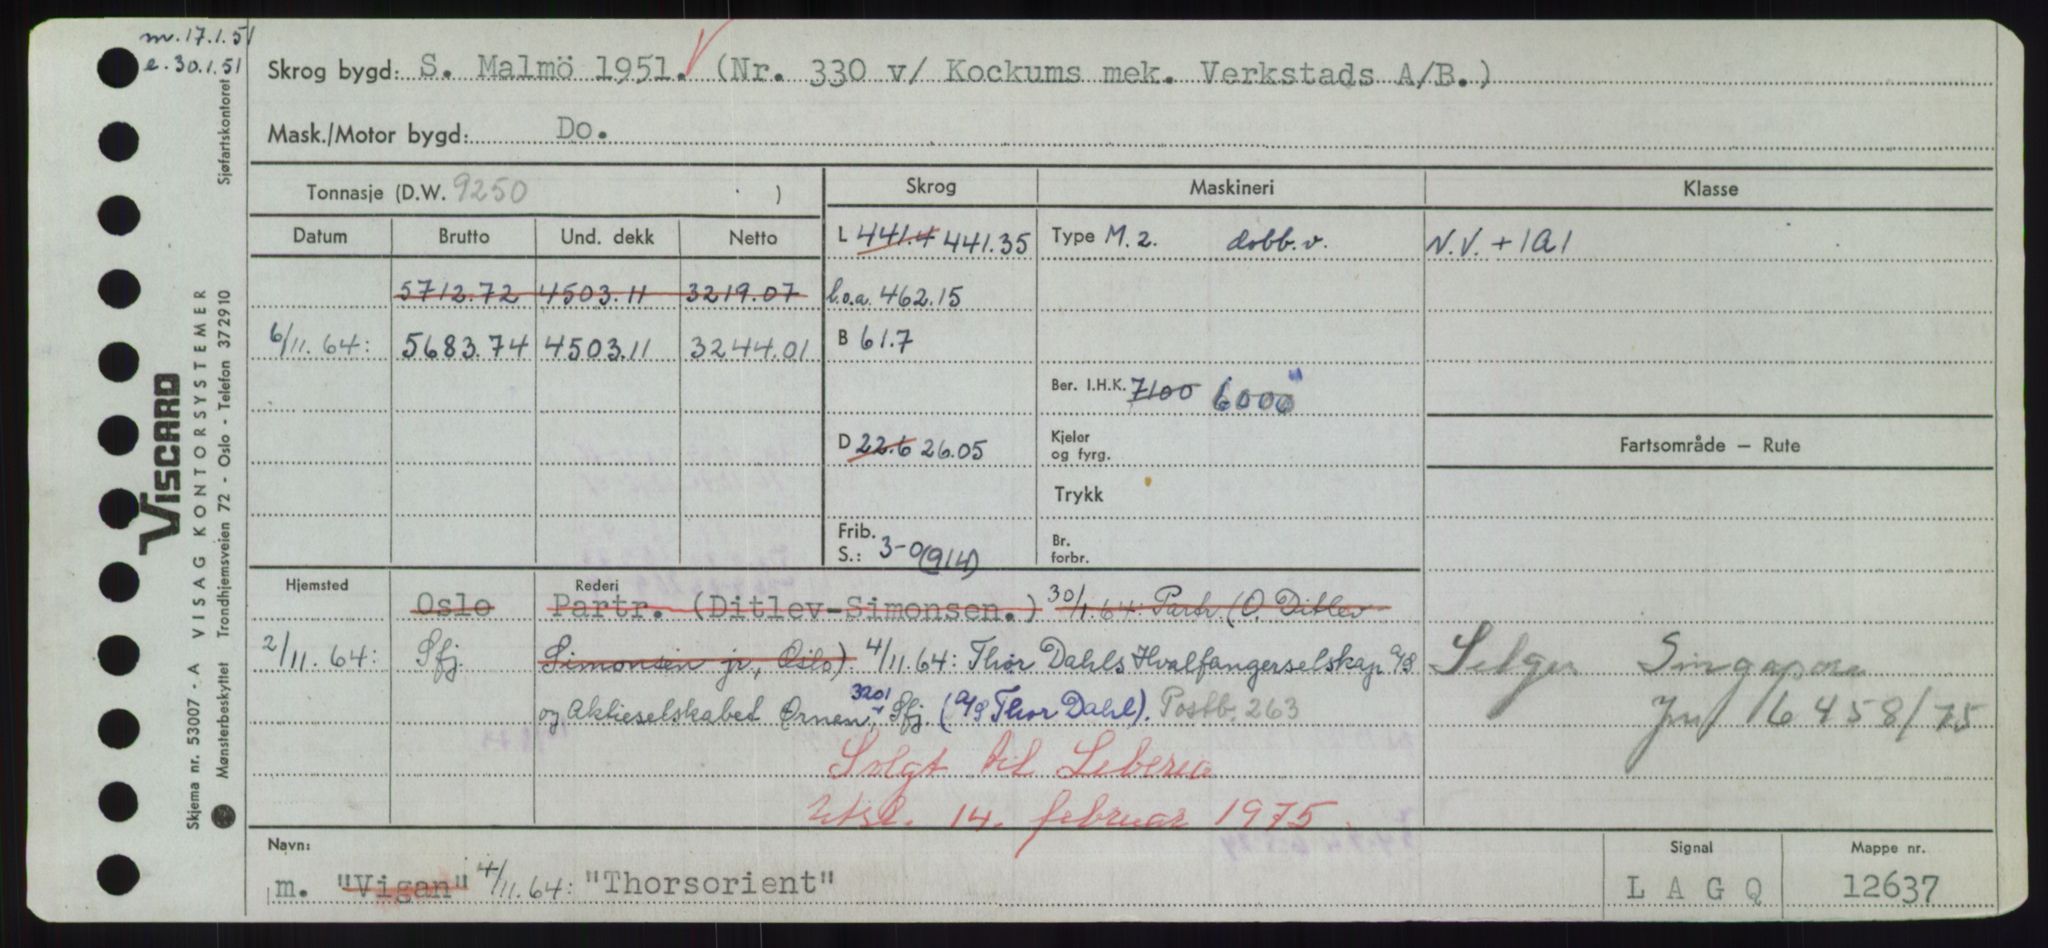 m. 17.1.51
e. 30.1.51
Sjøfartskontoret
Skrog bygd: S. Malmö 1951. (Nr. 330 v/ Kockums mek. Verkstads A/B.)
Mask./Motor bygd: Do.
Tonnasje (D.W. 9250 )
Skrog
Maskineri
Klasse
Datum Brutto Und. dekk Netto
L 441.4 441.35
Type M. 2. dobb. v.
N.V. + 1A1
5712.72 4503.11 3219.07
l.o.a. 462.15
6/11.64: 5683.74 4503.11 3244.01
B 61.7
Ber. I.H.K. 7100 6000
D 22.6 26.05
Kjeler og fyrg.
Fartsområde — Rute
Trykk
Frib. S.: 3-0 (914)
Br. forbr.
Hjemsted
Rederi
Oslo Partr. (Ditlev-Simonsen.) 30/1.64: Partr. (O. Ditlev
2/11.64: Sfj. Simonsen jr., Oslo) 4/11.64: Thor Dahls Hvalfangerselskap A/S
og Aktieselskabet Ørnen, 3201 Sfj. (A/S Thor Dahl). Postb. 263
Selges Singapore
Jnr 16458/75
Solgt til Liberia
Utsl. 14. februar 1975
Navn:
m. "Vigan" 4/11.64: "Thorsorient"
Signal
L A G Q
Mappe nr.
12637
VISCARD
Skjema nr. 53007 - A VISAG KONTORSYSTEMER
Mønsterbeskyttet Trondhjemsveien 72 - Oslo - Telefon 372910